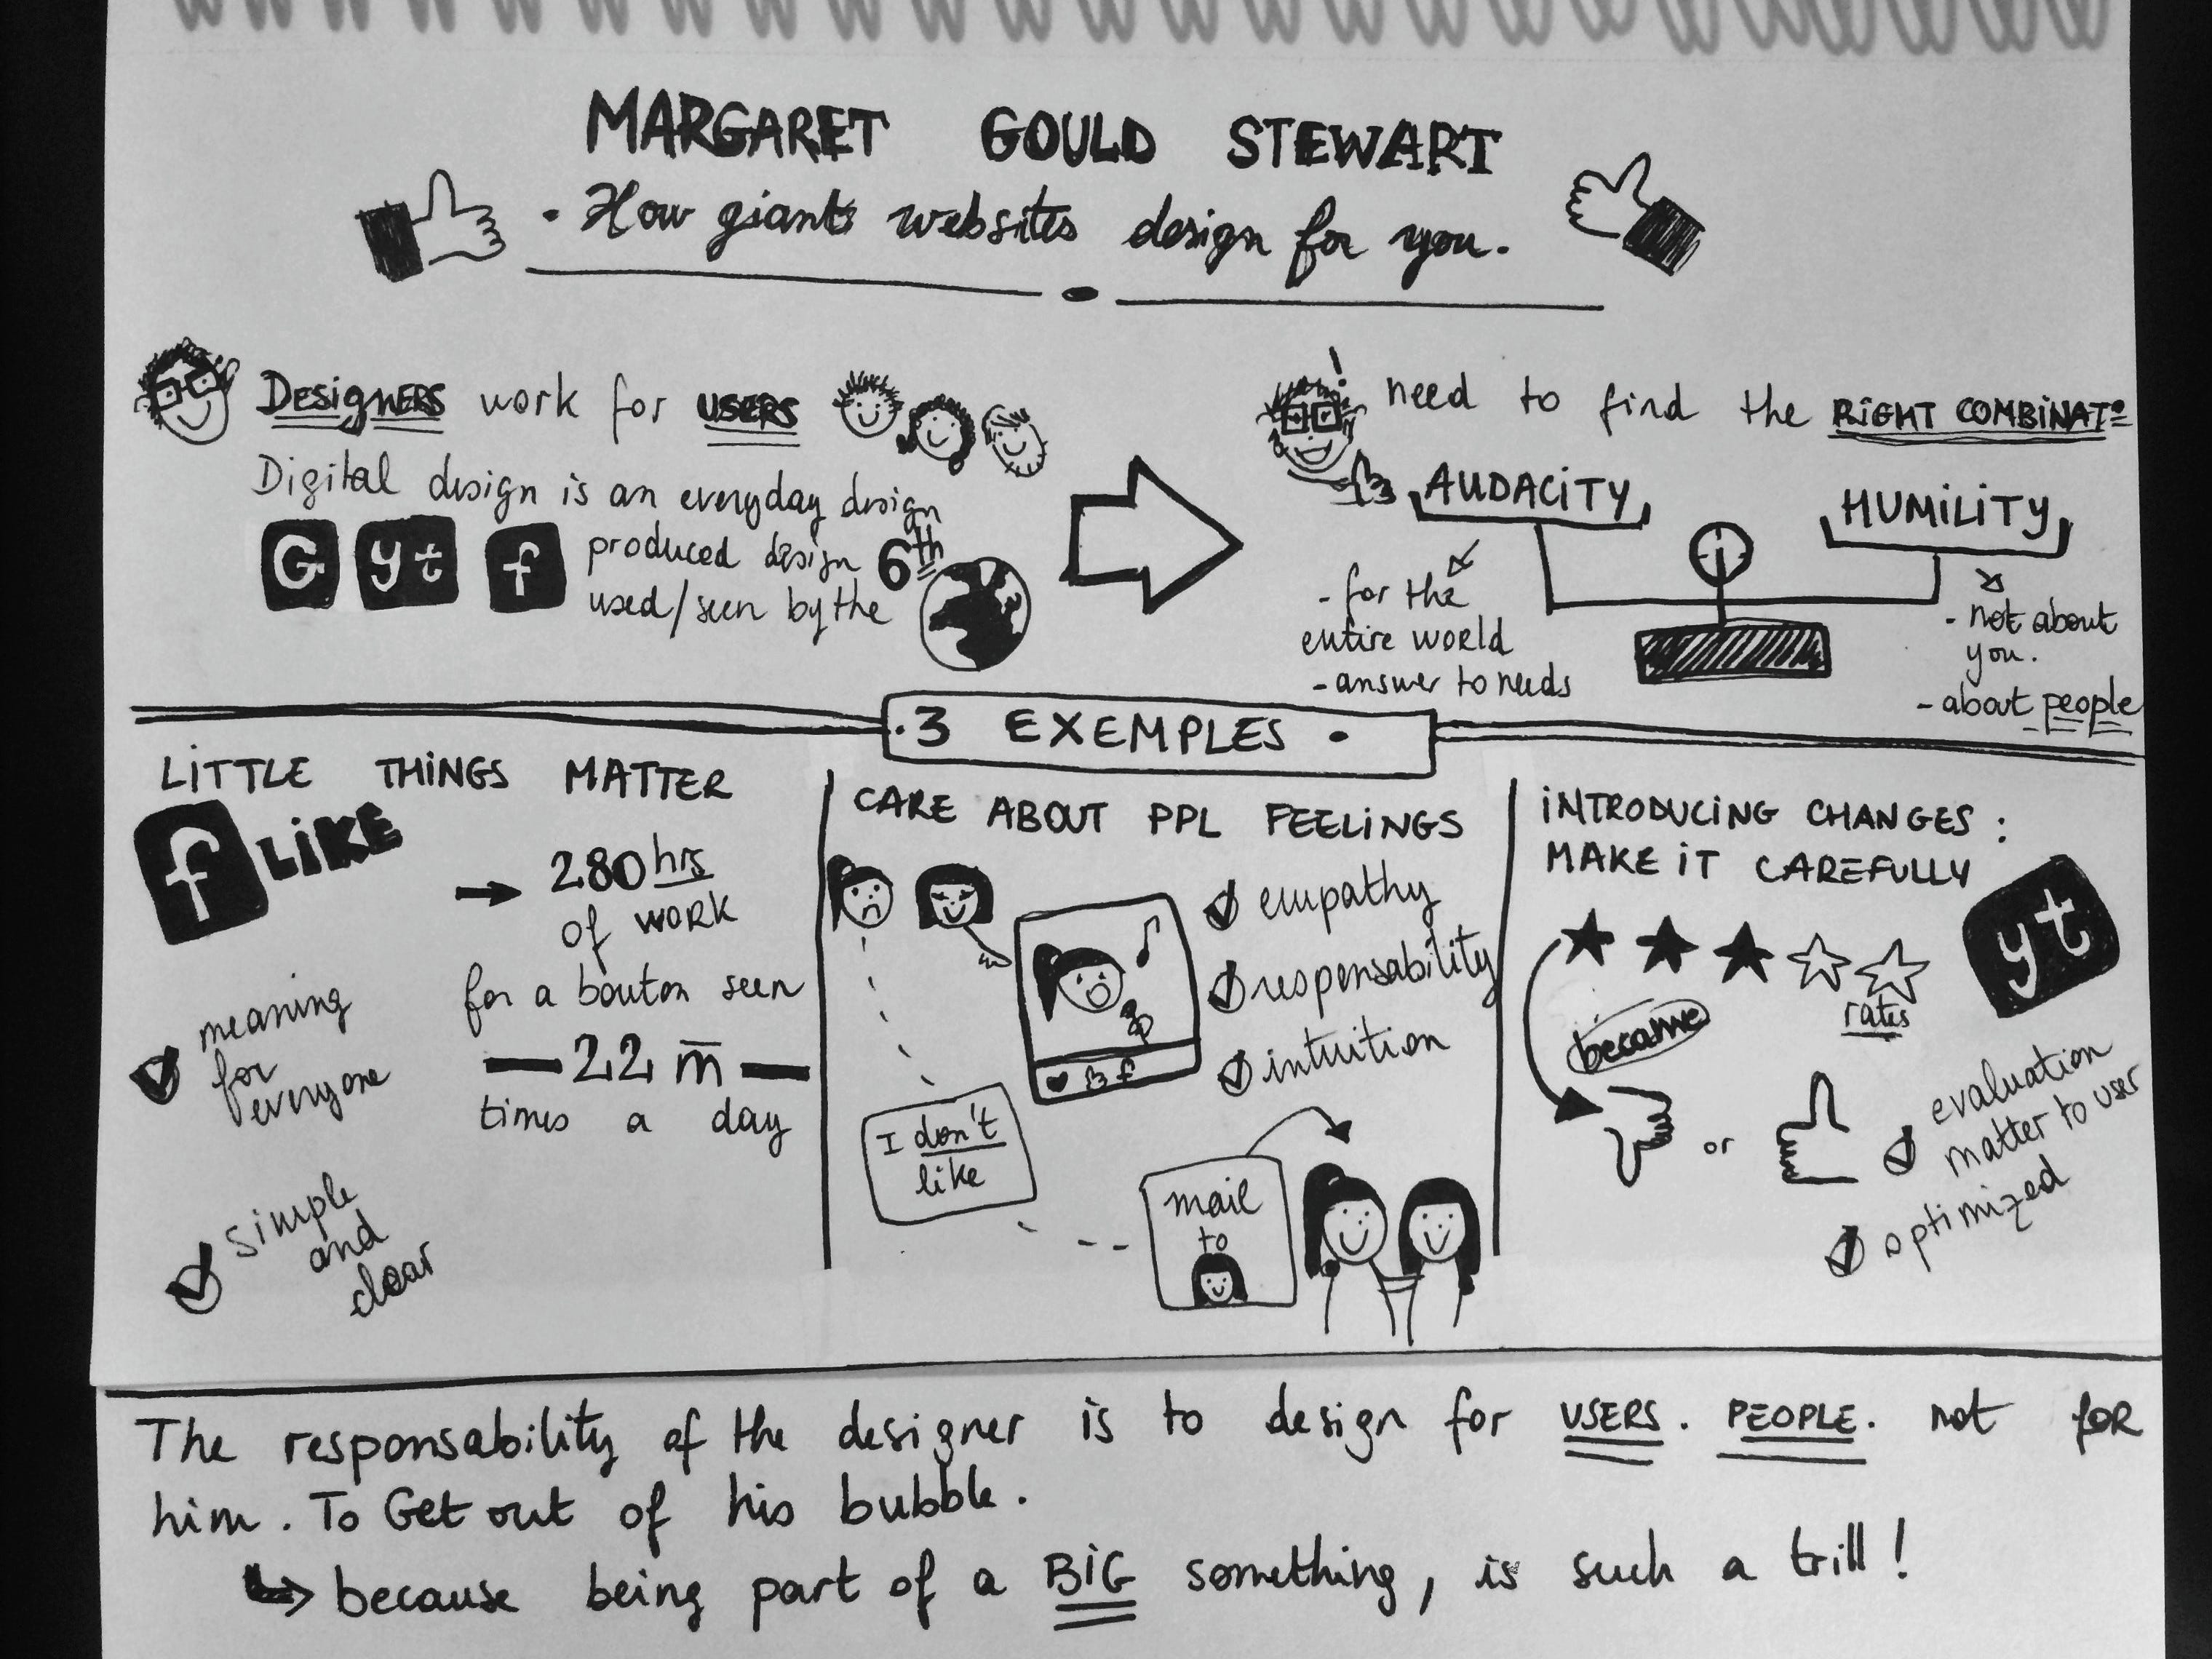 MARGARET GOULD STEWART
· How giants websites design for you.
DESIGNERS work for USERS
Digital design is an everyday design
G yt f produced design 6th
used/seen by the
! need to find the RIGHT COMBINAT°
AUDACITY
- for the
entire world
- answer to needs
HUMILITY
- not about
you.
- about people
· 3 EXEMPLES ·
LITTLE THINGS MATTER
f LIKE
→ 280 hrs
of work
for a bouton seen
— 22 m —
times a day
meaning
for
everyone
simple
and
clear
CARE ABOUT PPL FEELINGS
empathy
responsability
intuition
f
I don't
like
mail
to
INTRODUCING CHANGES :
MAKE IT CAREFULLY
yt
rates
became
or
evaluation
matter to user
optimized
The responsability of the designer is to design for USERS. PEOPLE. not FOR
him. To Get out of his bubble.
↳ because being part of a BIG something, is such a trill !